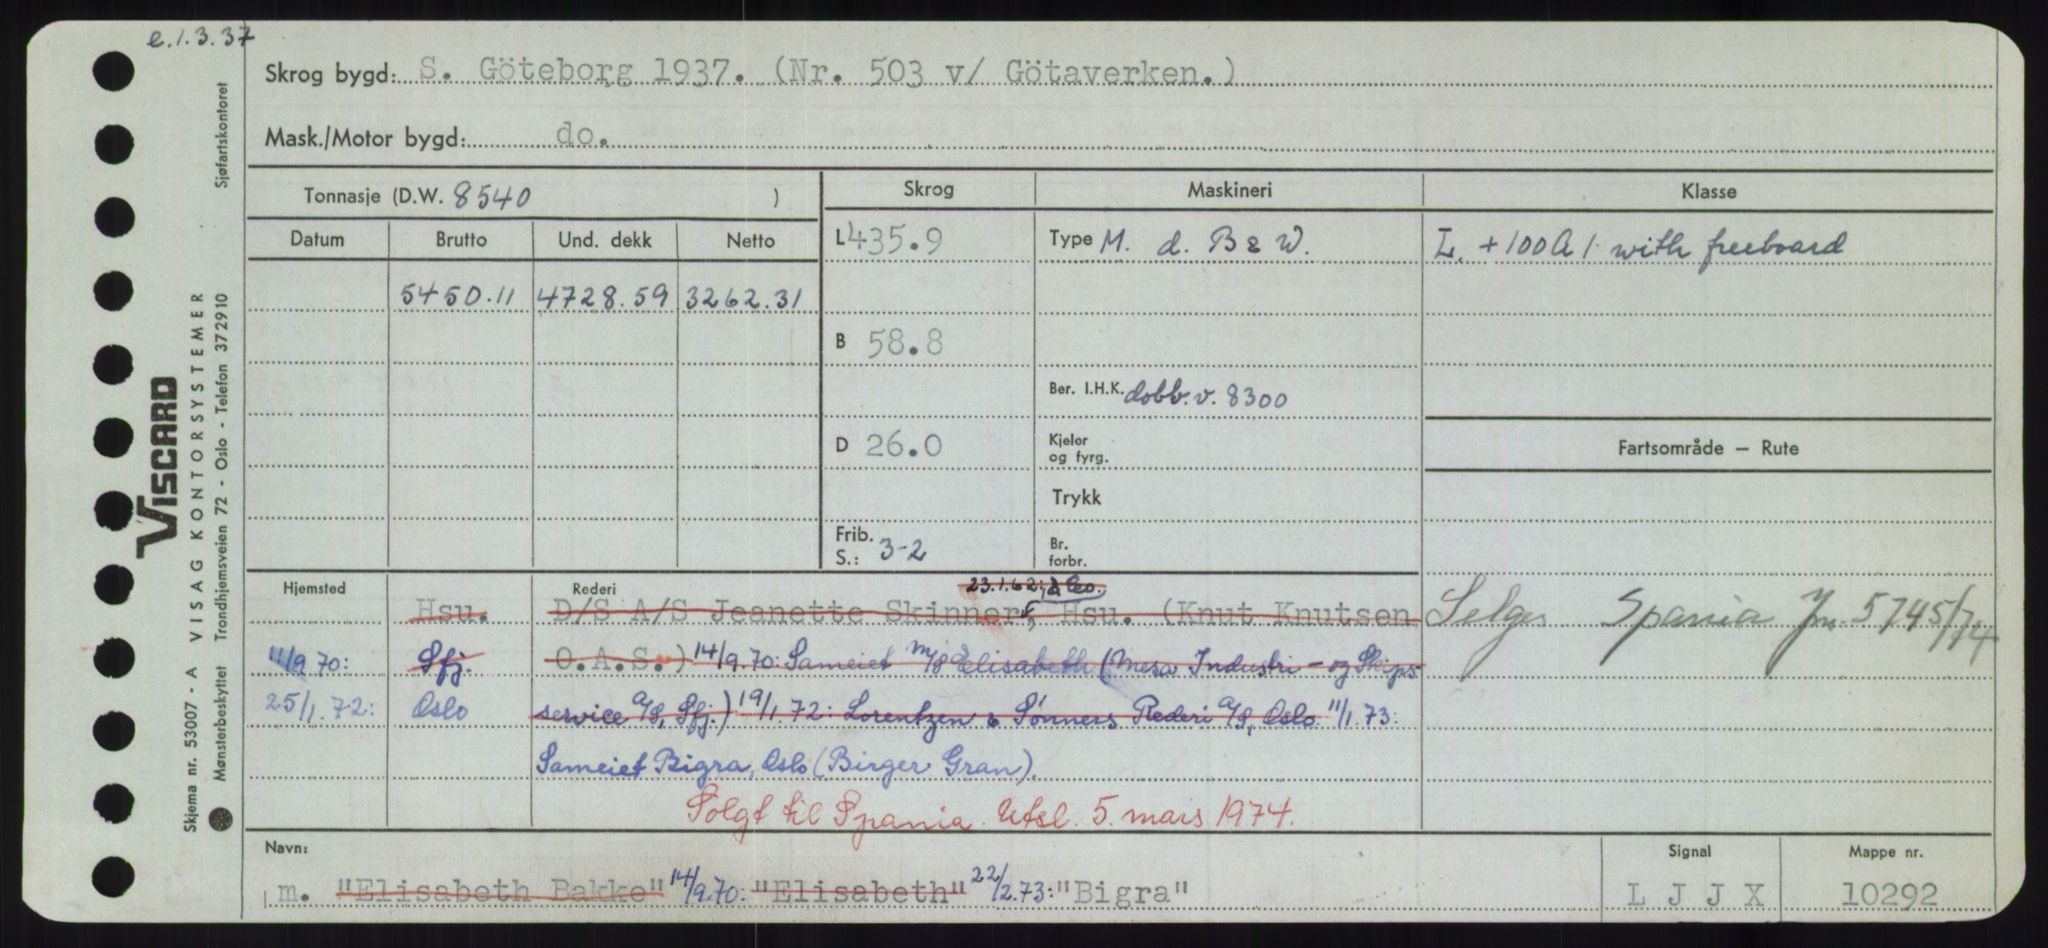 e.1.3.37
Skrog bygd: S. Göteborg 1937. (Nr. 503 v/ Götaverken.)
Mask./Motor bygd: do.
Tonnasje (D.W. 8540 )
Skrog
Maskineri
Klasse
Datum Brutto Und. dekk Netto
L 435.9
Type M. d. B & W.
L. +100 A 1 with freeboard
5450.11 4728.59 3262.31
B 58.8
Ber. I.H.K. dobb.v. 8300
D 26.0
Kjeler
og fyrg.
Fartsområde — Rute
Trykk
Frib.
S.: 3-2
Br.
forbr.
Hjemsted
Rederi
23.1.62: & Co.
Hsu. D/S A/S Jeanette Skinner, Hsu. (Knut Knutsen
Selges Spania Jn. 5745/74
11/9.70: Sfj. O.A.S.) 14/9.70: Sameiet M/S Elisabeth (Mesa Industri- og Skips
25/1.72: Oslo service A/S, Sfj.) 19/1.72: Lorentzen & Sønners Rederi A/S, Oslo. 11/1.73:
Sameiet Bigra, Oslo (Birger Gran).
Solgt til Spania. Utsl. 5. mars 1974.
Navn:
Signal
Mappe nr.
m. "Elisabeth Bakke" 14/9.70: "Elisabeth" 22/2.73: "Bigra"
L J J X
10292
VISCARD
Skjema nr. 53007 - A VISAG KONTORSYSTEMER
Mønsterbeskyttet Trondhjemsveien 72 - Oslo - Telefon 372910 Sjøfartskontoret